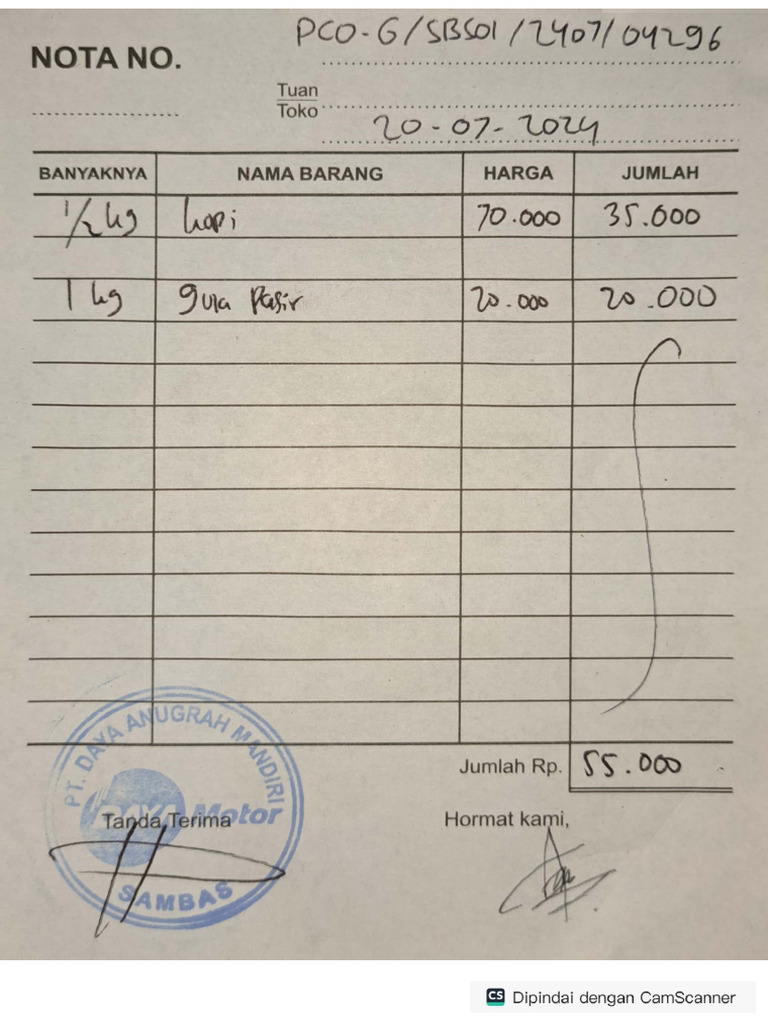 PCO-G/SBS01/2407/04296
NOTA NO.
Tuan
Toko
20-07-2024
BANYAKNYA NAMA BARANG HARGA JUMLAH
1/2 kg kopi 70.000 35.000
1 kg gula pasir 20.000 20.000
Jumlah Rp. 55.000
PT. DAYA ANUGRAH MANDIRI
DAYA Motor
SAMBAS
Tanda Terima Hormat kami,
CS Dipindai dengan CamScanner